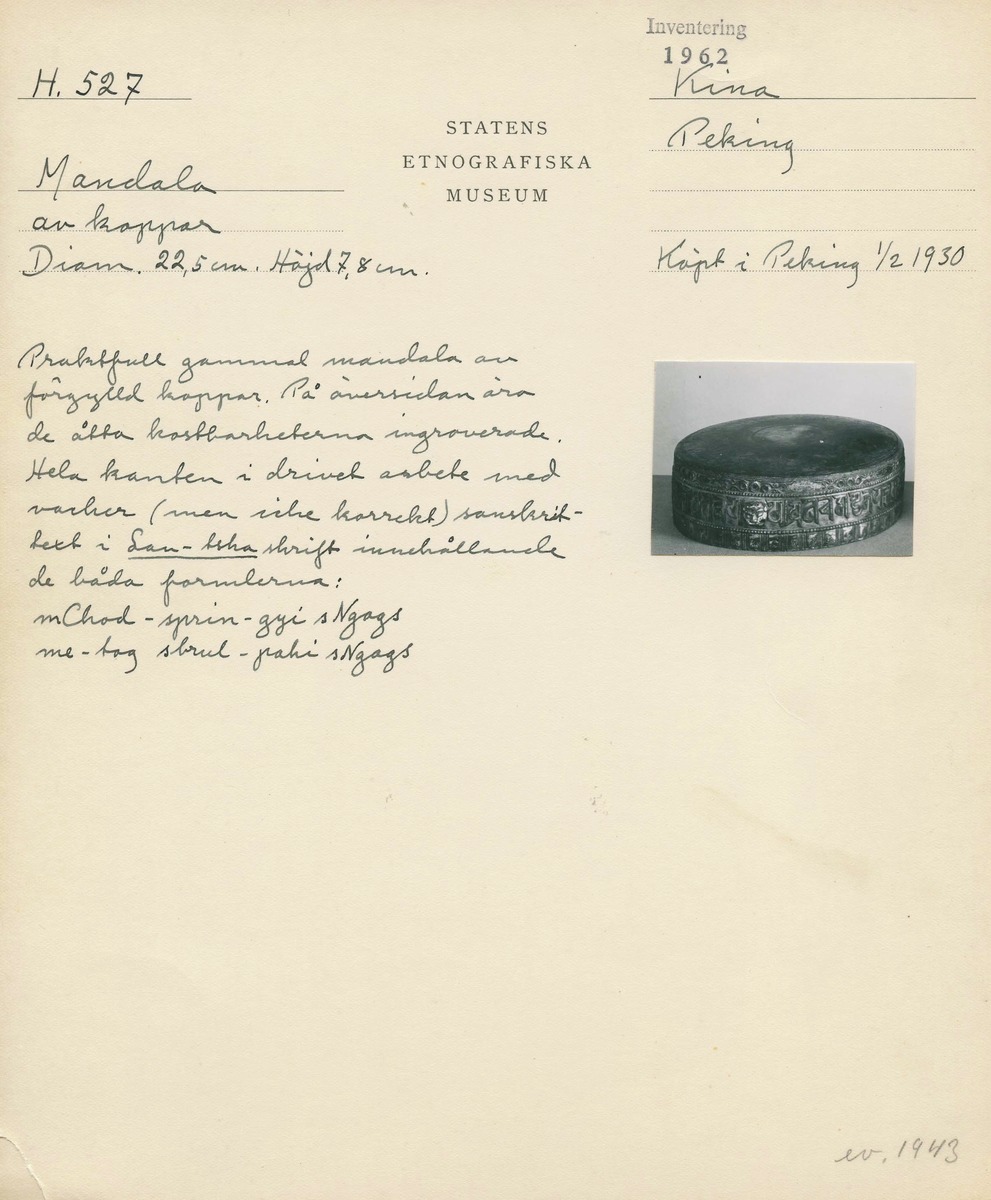 Inventering
1962
H. 527
Kina
STATENS
ETNOGRAFISKA
MUSEUM
Peking
Mandala
av koppar
Diam. 22,5 cm. Höjd 7,8 cm.
Köpt i Peking 1/2 1930
Praktfull gammal mandala av
förgylld koppar. På översidan äro
de åtta kostbarheterna ingraverade.
Hela kanten i drivet arbete med
vacker (men icke korrekt) sanskrit-
text i Lan-tsha skrift innehållande
de båda formlerna:
mChod-sprin-gyi sNgags
me-tog sbrul-pahi sNgags
ev. 1943